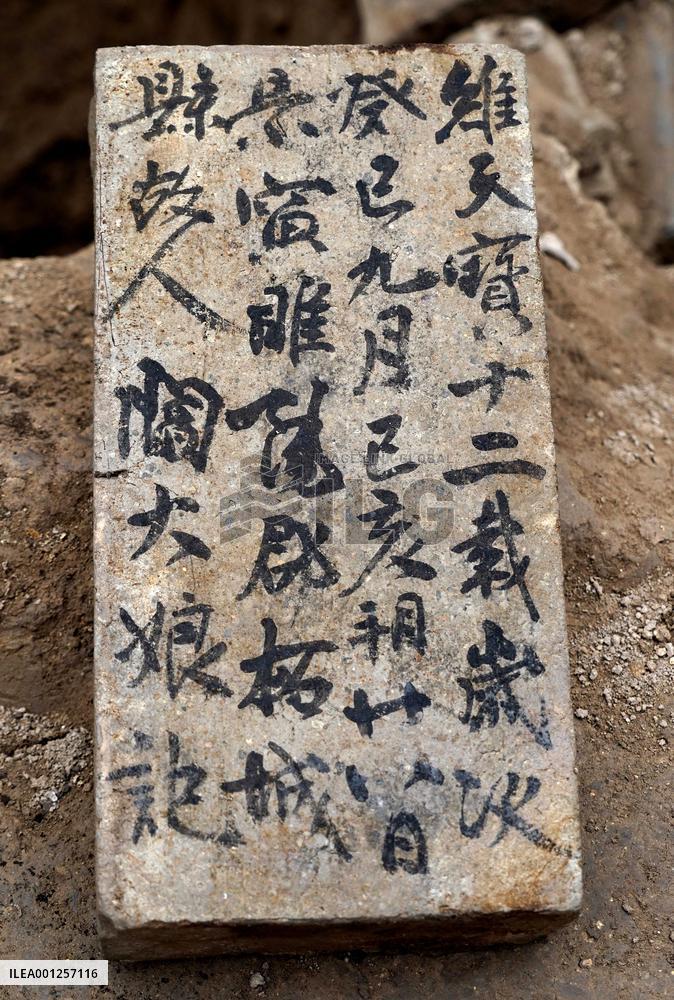 維天寶十二載歲次
癸巳九月己亥朔廿八日
景寅睢陽郡柘城
縣故人閻大娘記
ILG
ILEA001257116